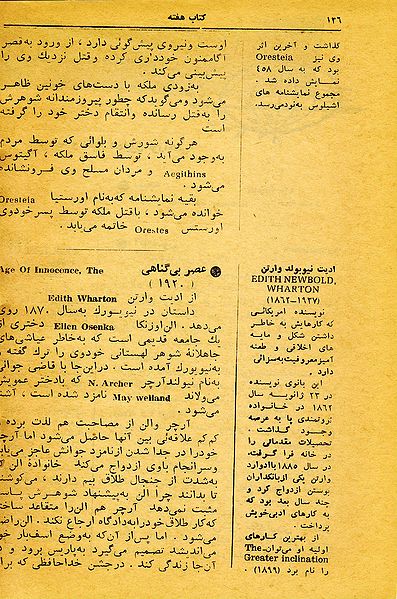 ۱۳۶
کتاب هفته
اوست ونیروی پیش‌گوئی دارد ، از ورود به‌قصر
آگاممنون خودداری کرده وقتل نزدیك وی را
پیش‌بینی می‌کند .
به‌زودی ملکه با دست‌های خونین ظاهر
می‌شود ومی‌گوید که چطور پیروزمندانه شوهرش
را به‌قتل رسانده وانتقام دختر خود را گرفته
است
هرگونه شورش و بلوائی که توسط مردم
به‌وجود می‌آید ، توسط فاسق ملکه ، آگیتوس
Aegithins و مردان مسلح وی فرونشانده
می‌شود .
بقیه نمایشنامه که‌به‌نام اورستیا Oresteia
خوانده می‌شود ، باقتل ملکه توسط پسرخودوی
اورستس Orestes خاتمه می‌یابد .
گذاشت و آخرین اثر
وی نیز Oresteia
بود که به سال ۴۵۸
نمایش داده شد .
مجموع نمایشنامه های
اشیلوس به‌نودمی‌رسد.
عصر بی‌گناهی Age Of Innocence, The
( ۱۹۲۰ )
از ادیت وارتن Edith Wharton
داستان در نیویورك به‌سال ۱۸۷۰ روی
می‌دهد . الن‌اوزنکا Ellen Osenka دختری از
یك جامعه قدیمی است که به‌خاطر عیاشی‌های
جاهلانهٔ شوهر لهستانی خودوی را ترك گفته و
به‌نیویورك آمده است . دراین‌جا با قاضی جوانی
به‌نام نیولندآرچر N. Archer که بادختر عمویش
می‌ولاند May welland نامزد شده است ، آشنا
می‌شود .
آرچر والن از مصاحبت هم لذت برده و
کم‌کم علاقه‌ئی بین آنها حاصل می‌شود اما آرچر
خودرا در جدا شدن ازنامزد جوانش عاجز می‌یابد
وسرانجام باوی ازدواج می‌کند خانوادهٔ الن که
به‌شدت از جنجال طلاق بیم دارند ، می‌کوشند
تا بدانند چرا الن به‌پیشنهاد شوهرش پاسخ
مثبت نمی‌دهد آرچر هم الن‌را متقاعد ساخته
که‌کار طلاق خودرابه‌دادگاه ارجاع نکند . الن‌راضی
می‌شود . اما پس‌از آن‌که به‌وضع اسف‌بار خود
می‌اندیشد تصمیم می‌گیرد به‌پاریس برود و در
آن‌جا زندگی کند . درجشن خداحافظی که برای
ادیت نیوبولد وارتن
EDITH NEWBOLD,
WHARTON
(۱۹۳۷–۱۸۶۲)
نویسنده امریکائی
که کارهایش به خاطر
داشتن شکل و مایه
های اخلاقی و طعنه
آمیزمعروفیت‌به‌سزائی
دارد .
این بانوی نویسنده
در ۲۳ ژانویه سال
۱۸۶۲ در خانواده
ثروتمندی پا به عرصه
وجود گذاشت .
تحصیلات مقدماتی را
در خانه فرا گرفت.
در سال ۱۸۸۵ باادوارد
وارتن یکی ازبانکداران
بوستن ازدواج کرد و
چند سال بعد بود که
به کارهای ادبی‌خویش
پرداخت .
از بهترین کارهای
اولیه او می‌توان The
Greater inclination
را نام برد (۱۸۹۹) .